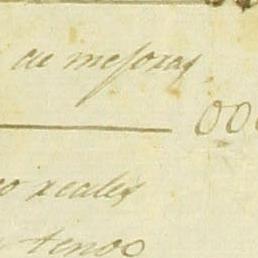 de mejoras
000
o reales
tenos